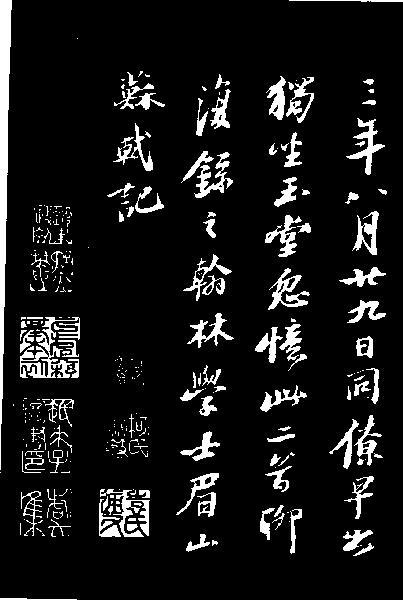 三年八月廿九日同僚早出
獨坐玉堂忽憶此二首聊
復錄之翰林學士眉山
蘇軾記